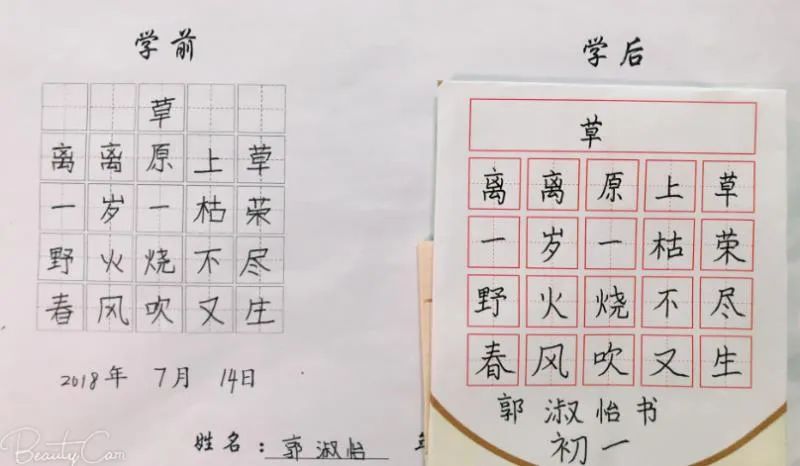 学前
草
离离原上草
一岁一枯荣
野火烧不尽
春风吹又生
2018年 7月 14日
姓名：郭淑怡
学后
草
离离原上草
一岁一枯荣
野火烧不尽
春风吹又生
郭淑怡书
初一
BeautyCam